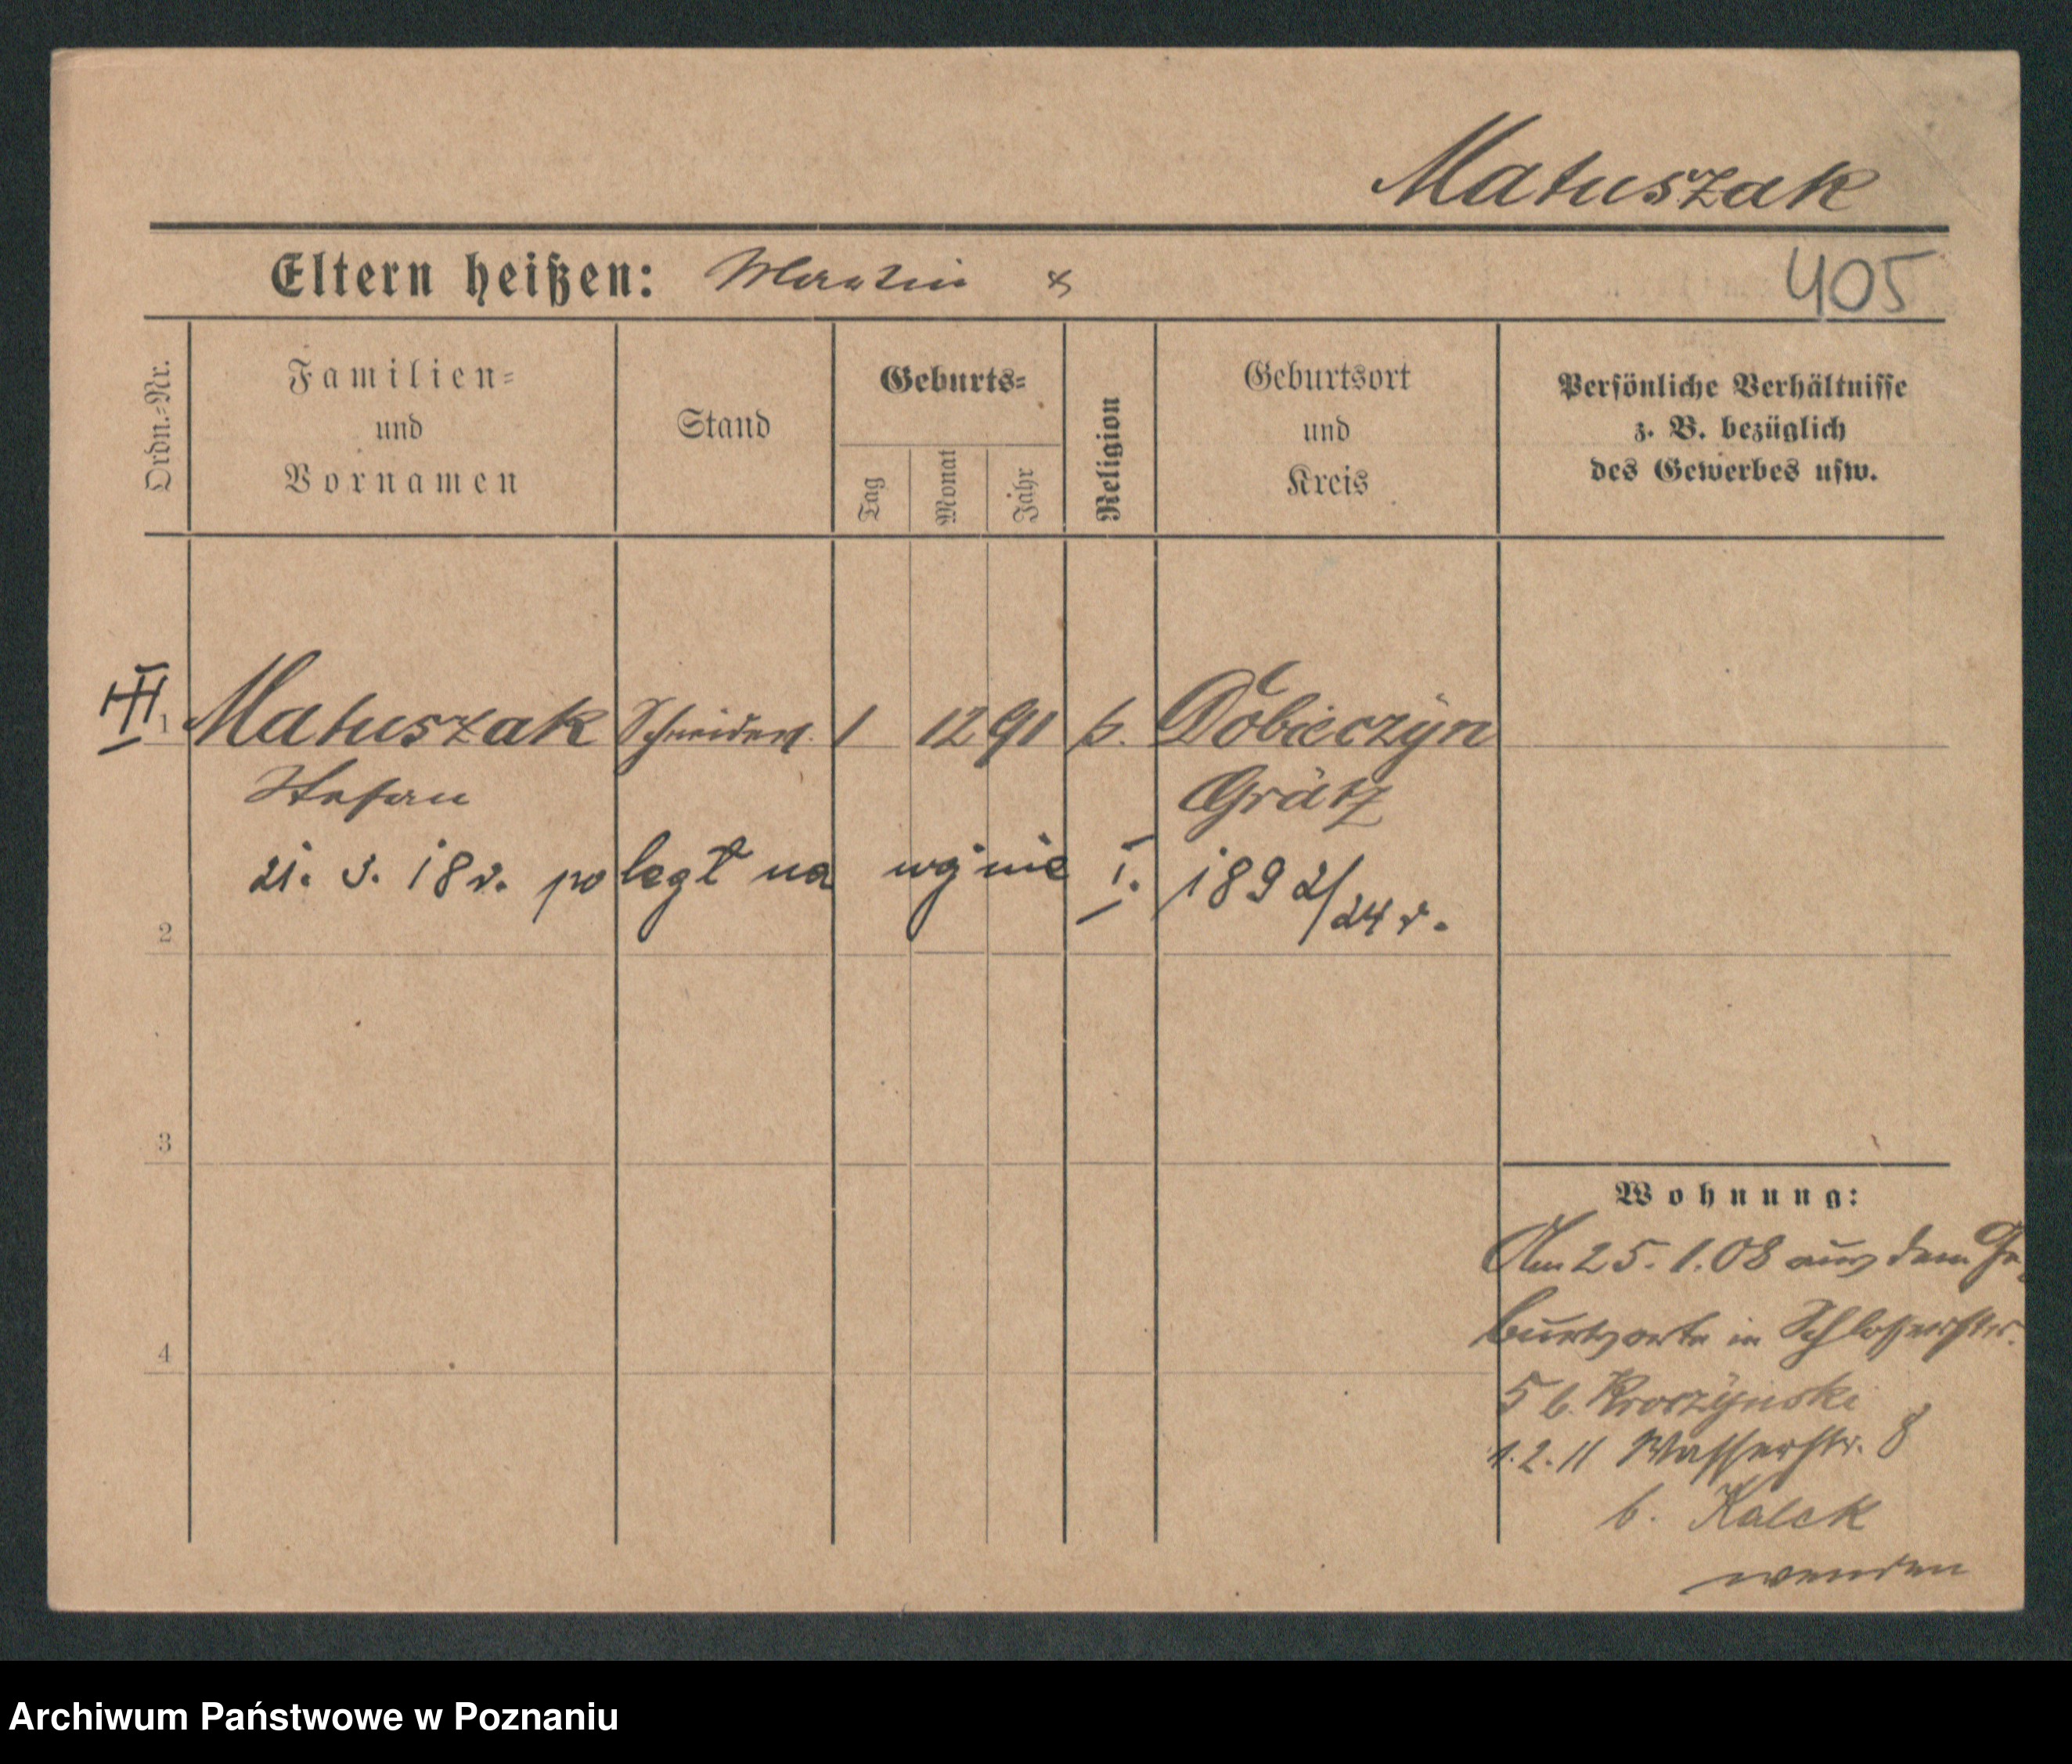 Matuszak
Eltern heißen: Martin &
405
Ordn.-Nr.
Familien-
und
Vornamen
Stand
Geburts-
Tag
Monat
Jahr
Religion
Geburtsort
und
Kreis
Persönliche Verhältnisse
z. B. bezüglich
des Gewerbes usw.
1 Matuszak 1 12 91 k. Dobieczyn
Stefan Grätz
21. 3. 18 r. poległ na wojnie I. 1892/24 r.
2
3
4
Wohnung:
Am 25. 1. 08 aus dem Ge-
burtsorte in Schlosserstr.
5 b. Kroszynski
1. 2. 11 Wasserstr. 8
b. Kalek
wenden
Archiwum Państwowe w Poznaniu